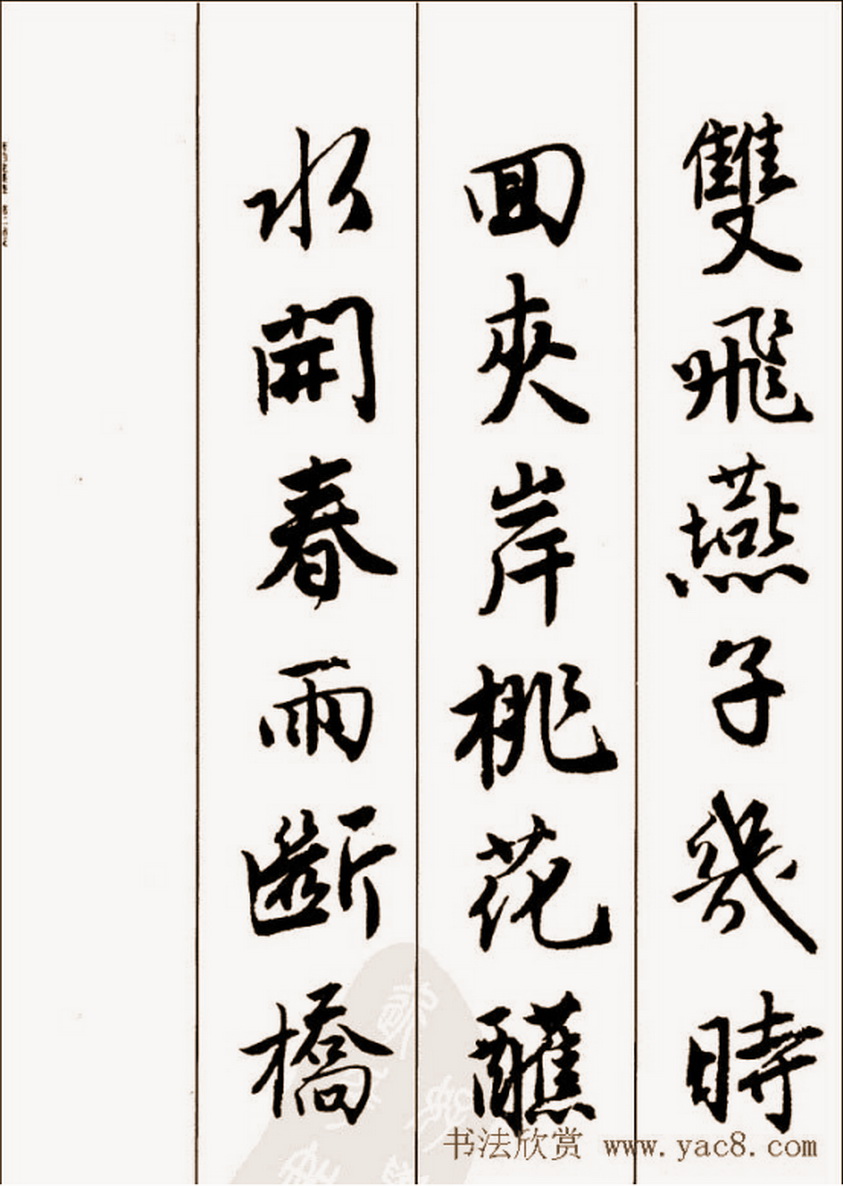 雙飛燕子幾時
回夾岸桃花醮
水開春雨斷橋
书法欣赏 www.yac8.com